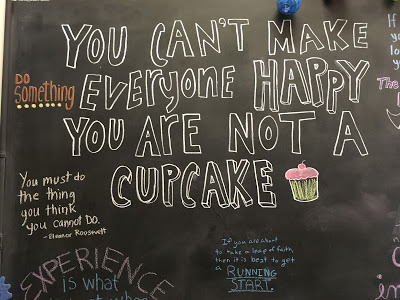 YOU CAN'T MAKE
EVERYONE HAPPY
YOU ARE NOT A
CUPCAKE
DO
Something
You must do
the thing
you think
you cannot DO.
- Eleanor Roosevelt
If you are about
to take a leap of faith,
then it is best to get
a RUNNING
START.
EXPERIENCE
is what
If
The